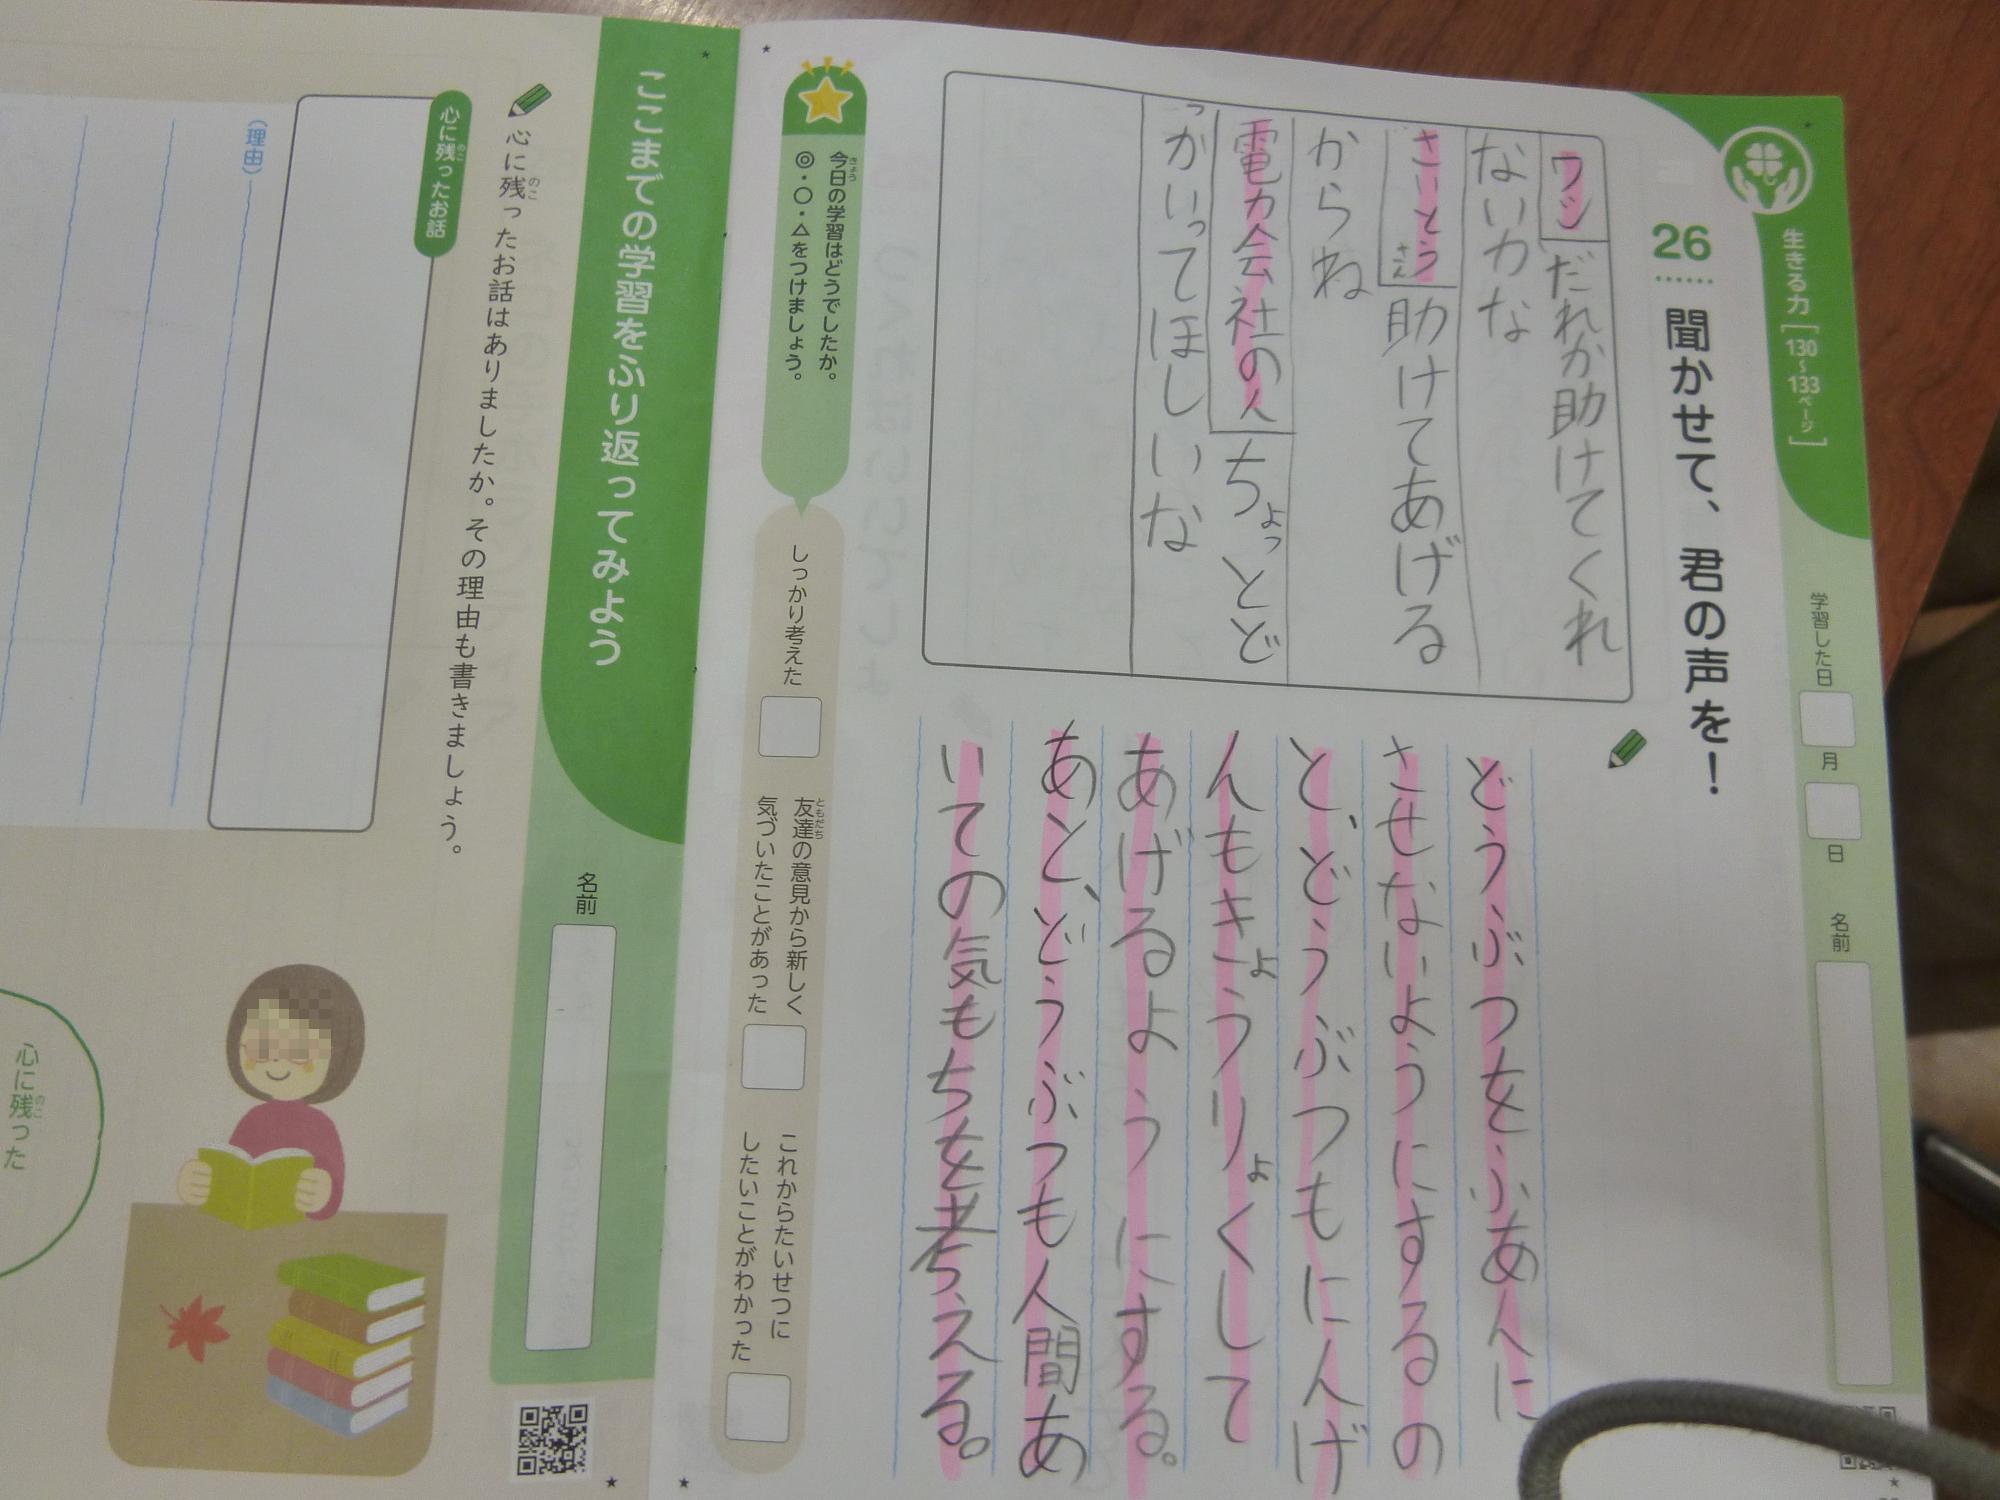 生きる力[130~133ページ]
学習した日
月
日
名前
26 聞かせて、君の声を!
ワシ だれか助けてくれ
ないカな
さいとうさん 助けてあげる
からね
電力会社の人 ちょっとど
っかいってほしいな
どうぶつをふあんに
させないようにするの
と、どうぶつもにんげ
んもきょうりょくして
あげるようにする。
あと、どうぶつも人間あ
いての気もちを考える。
今日の学習はどうでしたか。
きょう
◎・○・△をつけましょう。
しっかり考えた
友達の意見から新しく
ともだち
気づいたことがあった
これからたいせつに
したいことがわかった
ここまでの学習をふり返ってみよう
名前
心に残ったお話はありましたか。その理由も書きましょう。
のこ
心に残ったお話
のこ
(理由)
心に残った
のこ